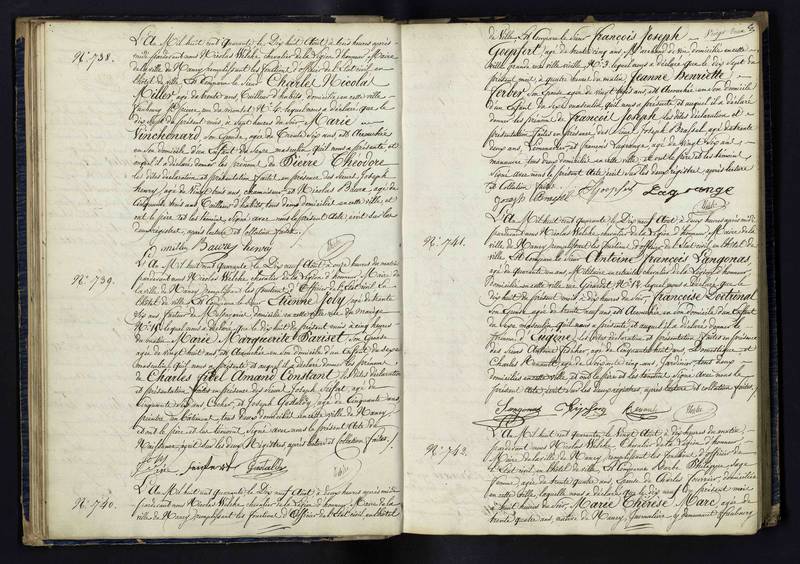 N.º 738.
L'An Mil huit cent quarante le Dix huit Août, à trois heures après-
midi pardevant nous Nicolas Welche, chevalier de la Légion d'honneur, Maire
de la ville de Nancy remplissant les fonctions d'officier de l'état civil, en
l'hôtel de ville. Est comparu le Sieur Charles Nicolas
Milles, agé de trente ans, Tailleur d'habits, domicilié en cette ville
faubourg St. Pierre, lequel nous a déclaré que le
Dix Sept du présent mois, à Sept heures du Soir Marie
Vinchenard Son Epouse, agée de Trente Six ans est Accouchée
en son domicile d'un Enfant du Sexe masculin, qu'il nous a présenté et
auquel il a déclaré donner les prénoms de Pierre Théodore
les dites déclaration et présentation faites en présence des Sieurs Joseph
henry, agé de Vingt huit ans, et Nicolas Bawr, agé de
Cinquante trois ans Tailleur d'habits, tous deux domiciliés en cette ville, et
ont le père et les témoins, Signé avec nous le présent Acte écrit sur les
deux registres, après lecture et collation faites.
Bawr henry
N.º 739.
L'An Mil huit cent quarante le Dix neuf Août à onze heures du matin
pardevant nous Nicolas Welche, chevalier de la Légion d'honneur, Maire de
la ville de Nancy, remplissant les fonctions d'Officier de l'Etat civil, en
l'hôtel de ville. Est Comparu le Sieur Etienne Joly agé de trente
Six ans facteur de Messageries domicilié en cette ville rue du manège
N.º 18, lequel nous a déclaré que le dix huit du présent mois à cinq heures
du matin Marie Marguerite Pariset, Son Epouse
agée de vingt huit ans, est Accouchée en son domicile d'un Enfant du Sexe
masculin, qu'il nous a présenté et auquel il a déclaré donner les prénoms
de Charles fidel Amand Constant les dites déclaration
et présentation faites en présence des Sieurs Joseph Seifert agé de
Cinquante ans, Cocher, et Joseph Godalle, agé de Cinquante ans
peintre en bâtiment, tous deux domiciliés en cette ville de Nancy
et ont le père et les témoins, Signé avec nous le présent Acte de
Naissance, écrit sur les deux Registres, après lecture et collation faites.
Joly
père
N.º 740.
L'An Mil huit cent quarante le Dix neuf Août, à deux heures après midi
pardevant nous Nicolas Welche, chevalier de la Légion d'honneur, Maire de la
ville de Nancy, remplissant les fonctions d'Officier de l'Etat civil, en l'hôtel
de Ville. Est Comparu le Sieur François Joseph
Goepfert, agé de trente cinq ans, Marchand de vin, domicilié en cette
ville, grande rue ville vieille N.º 3. lequel nous a déclaré que le dix Sept du
présent mois, à quatre heures du matin, Jeanne henriette
ferber Son Epouse, agée de vingt ans est Accouchée en son domicile
d'un Enfant du Sexe masculin, qu'il nous a présenté et auquel il a déclaré
donner les prénoms de François Joseph, les dites déclaration et
présentation faites en présence, des Sieurs Joseph Brassel, agé de trente
deux ans, Limonadier et francois Lagrange, agé de vingt Six ans
manœuvre, tous deux domiciliés en cette ville, et ont le père et les témoins
Signé avec nous le présent Acte, écrit sur les deux registres, après lecture
et collation faites.
Joseph Brassel Goepfert Lagrange
N.º 741.
L'An Mil huit cent quarante le Dix neuf Août à deux heures après midi
pardevant nous Nicolas Welche, chevalier de la Légion d'honneur, Maire de la
ville de Nancy, remplissant les fonctions d'officier de l'Etat civil en l'hôtel de
ville. Est Comparu le Sieur Antoine François Langonas,
agé de quarante ans, Militaire en retraite, chevalier de la Légion d'honneur,
Domicilié en cette ville rue Girardet N.º 12 lequel nous a déclaré que le
dix huit du présent mois à dix heures du Soir françoise Doctrinal
Son Epouse agée de trente neuf ans est Accouchée en son domicile d'un Enfant
du Sexe masculin, qu'il nous a présenté et auquel il a déclaré donner le
Prénom d'Eugène, les dites déclaration et présentation faites en présence
des Sieurs Antoine agé de Cinquante huit ans, et
Charles Renauld, agé de cinq ans, Jardinier, tous deux
domiciliés en cette ville, et ont le père et les témoins, Signé avec nous le
présent Acte écrit sur les deux registres, après lecture et collation faites.
Langonas
N.º 742.
L'An Mil huit cent quarante, le Vingt Août, à dix heures du matin,
pardevant nous Nicolas Welche, Chevalier de la Légion d'honneur,
Maire de la ville de Nancy, remplissant les fonctions d'officier de
l'Etat civil, en l'hôtel de ville. Est Comparue Barbe Philippe, Sage
femme, agée de trente quatre ans, Epouse de Charles fournier, domiciliée
en cette ville, laquelle nous a déclaré que le Dix neuf du présent mois
à huit heures du Soir, Marie Thérèse Marc, agée de
trente quatre ans, native de Nancy, Journalière, y demeurant, faubourg